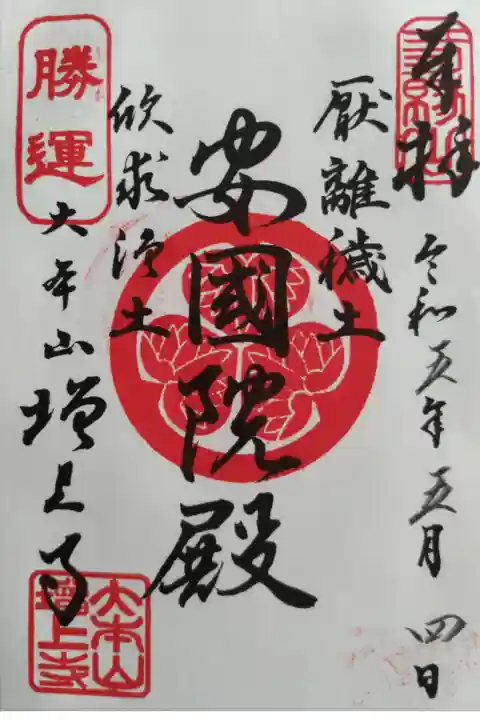 奉拝
令和五年五月四日
厭離穢土
安國院殿
欣求浄土
勝運
大本山増上寺
大本山
增上寺